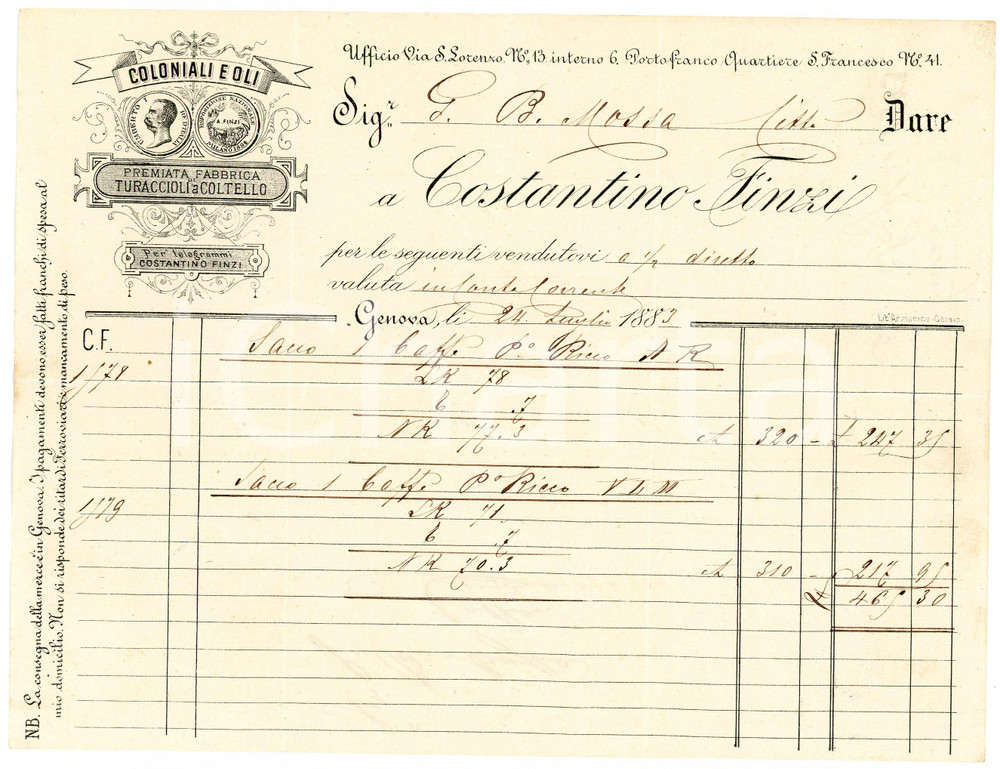 Ufficio Via S. Lorenzo. Nº, 13 interno 6. Portofranco, Quartiere S. Francesco Nº. 41.
COLONIALI E OLI
UMBERTO I RE D'ITALIA
ESPOSIZIONE NAZIONALE
A. FINZI
MILANO 1881
PREMIATA FABBRICA
DI
TURACCIOLI a COLTELLO
Per telegrammi
COSTANTINO FINZI
Sigr. G. B. Mossa Città Dare
a Costantino Finzi
per le seguenti vendutovi a 1/2 diretto
valuta in Conto Corrente
Genova, li 24 Luglio 1883
Lit. Armanino-Genova.
C.F.
Sacco 1 Caffe Pº Ricco N R
1578 LK 78
T .7
NK 77.3 A 320 - £ 247 35
Sacco 1 Caffe Pº Ricco
1579 LK 71.
T .7
NK 70.3 A 310 - 217 95
£ 465 30
NB. La consegna della merce è in Genova. I pagamenti devono esser fatti franchi di spesa al
mio domicilio. Non si risponde dei ritardi Ferroviari e mancamento di peso.